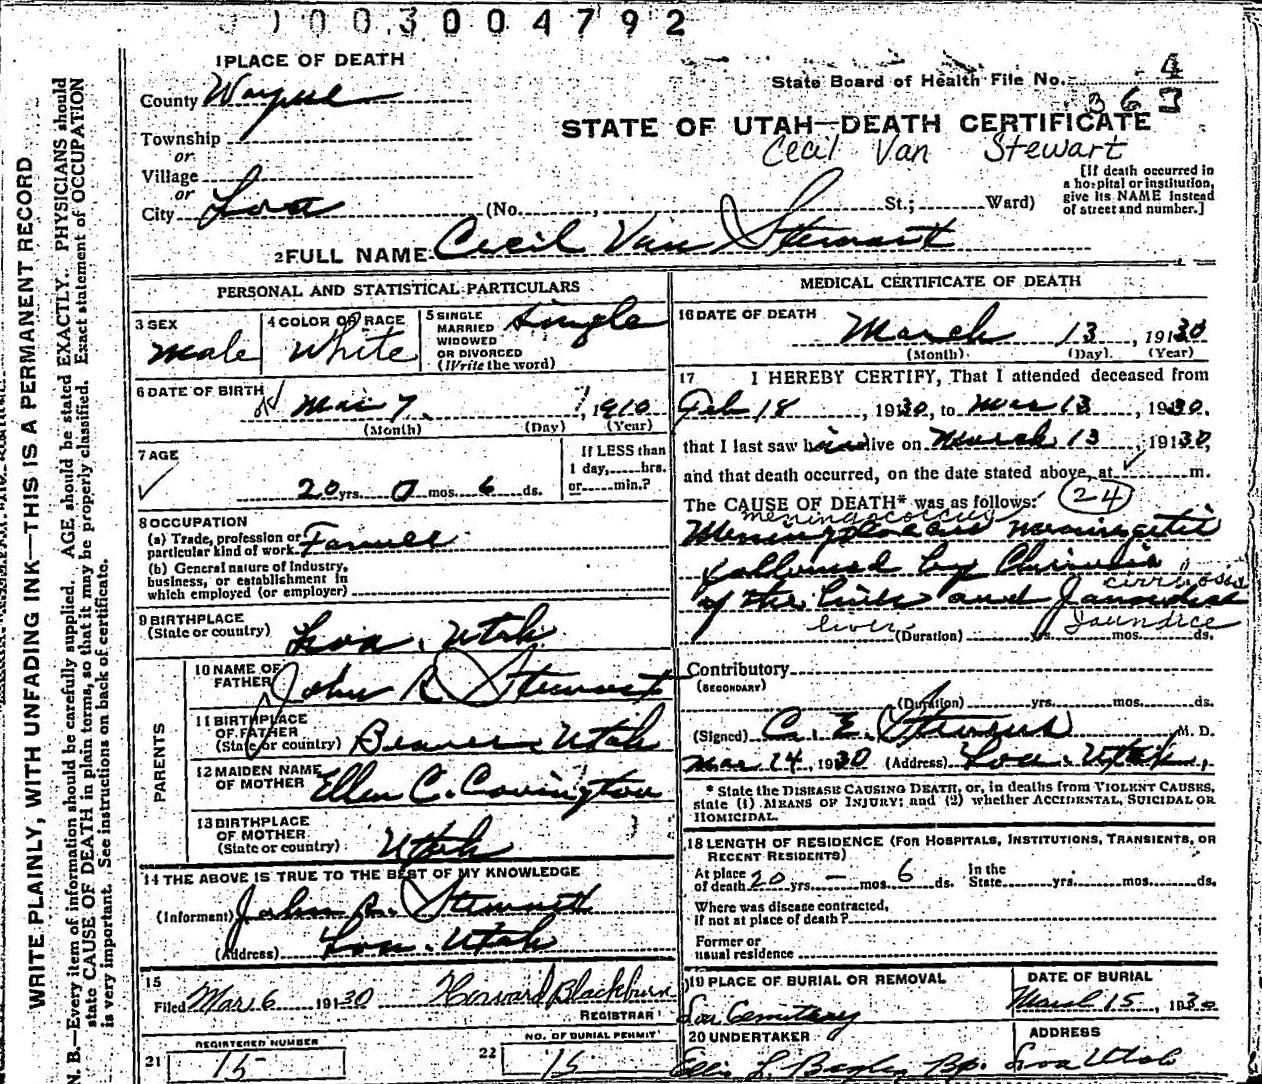 003004792
1 PLACE OF DEATH
County Wayne
State Board of Health File No. 4
363
Township
or
Village
or
City Loa
STATE OF UTAH—DEATH CERTIFICATE
Cecil Van Stewart
[If death occurred in
a hospital or institution,
give its NAME instead
of street and number.]
(No. , St.; Ward)
2 FULL NAME Cecil Van Stewart
PERSONAL AND STATISTICAL PARTICULARS
3 SEX
Male
4 COLOR OR RACE
White
5 SINGLE
MARRIED
WIDOWED
OR DIVORCED
(Write the word)
Single
6 DATE OF BIRTH
Mar 7, 1910
(Month) (Day) (Year)
7 AGE
20 yrs. 0 mos. 6 ds.
If LESS than
1 day, hrs.
or min.?
8 OCCUPATION
(a) Trade, profession or
particular kind of work Farmer
(b) General nature of Industry,
business, or establishment in
which employed (or employer)
9 BIRTHPLACE
(State or country) Loa, Utah
PARENTS
10 NAME OF
FATHER John R Stewart
11 BIRTHPLACE
OF FATHER
(State or country) Beaver, Utah
12 MAIDEN NAME
OF MOTHER Ellen C. Covington
13 BIRTHPLACE
OF MOTHER
(State or country) Utah
14 THE ABOVE IS TRUE TO THE BEST OF MY KNOWLEDGE
(Informant) John R. Stewart
(Address) Loa, Utah
15
Filed Mar 6 19130 Howard Blackburn
REGISTRAR
REGISTERED NUMBER
21 15
NO. OF BURIAL PERMIT
22 15
MEDICAL CERTIFICATE OF DEATH
16 DATE OF DEATH
March 13, 19130
(Month) (Day) (Year)
17 I HEREBY CERTIFY, That I attended deceased from
Feb 18, 19130, to Mar 13, 19130,
that I last saw him alive on March 13, 19130,
and that death occurred, on the date stated above, at m.
The CAUSE OF DEATH* was as follows: 24
meningococcus
followed by
cirrhosis
of the liver and Jaundice
liver Jaundice
(Duration) yrs. mos. ds.
Contributory
(SECONDARY)
(Duration) yrs. mos. ds.
(Signed) C. E. M. D.
Mar 14, 19130 (Address) Loa, Utah
* State the DISEASE CAUSING DEATH, or, in deaths from VIOLENT CAUSES,
state (1) MEANS OF INJURY; and (2) whether ACCIDENTAL, SUICIDAL OR
HOMICIDAL.
18 LENGTH OF RESIDENCE (FOR HOSPITALS, INSTITUTIONS, TRANSIENTS, OR
RECENT RESIDENTS)
At place
of death 20 yrs. – mos. 6 ds.
In the
State yrs. mos. ds.
Where was disease contracted,
if not at place of death?
Former or
usual residence
19 PLACE OF BURIAL OR REMOVAL
Loa Cemetery
DATE OF BURIAL
March 15, 1930
20 UNDERTAKER
ADDRESS
Loa Utah
WRITE PLAINLY, WITH UNFADING INK—THIS IS A PERMANENT RECORD
N. B.—Every item of information should be carefully supplied. AGE should be stated EXACTLY. PHYSICIANS should
state CAUSE OF DEATH in plain terms, so that it may be properly classified. Exact statement of OCCUPATION
is very important. See instructions on back of certificate.